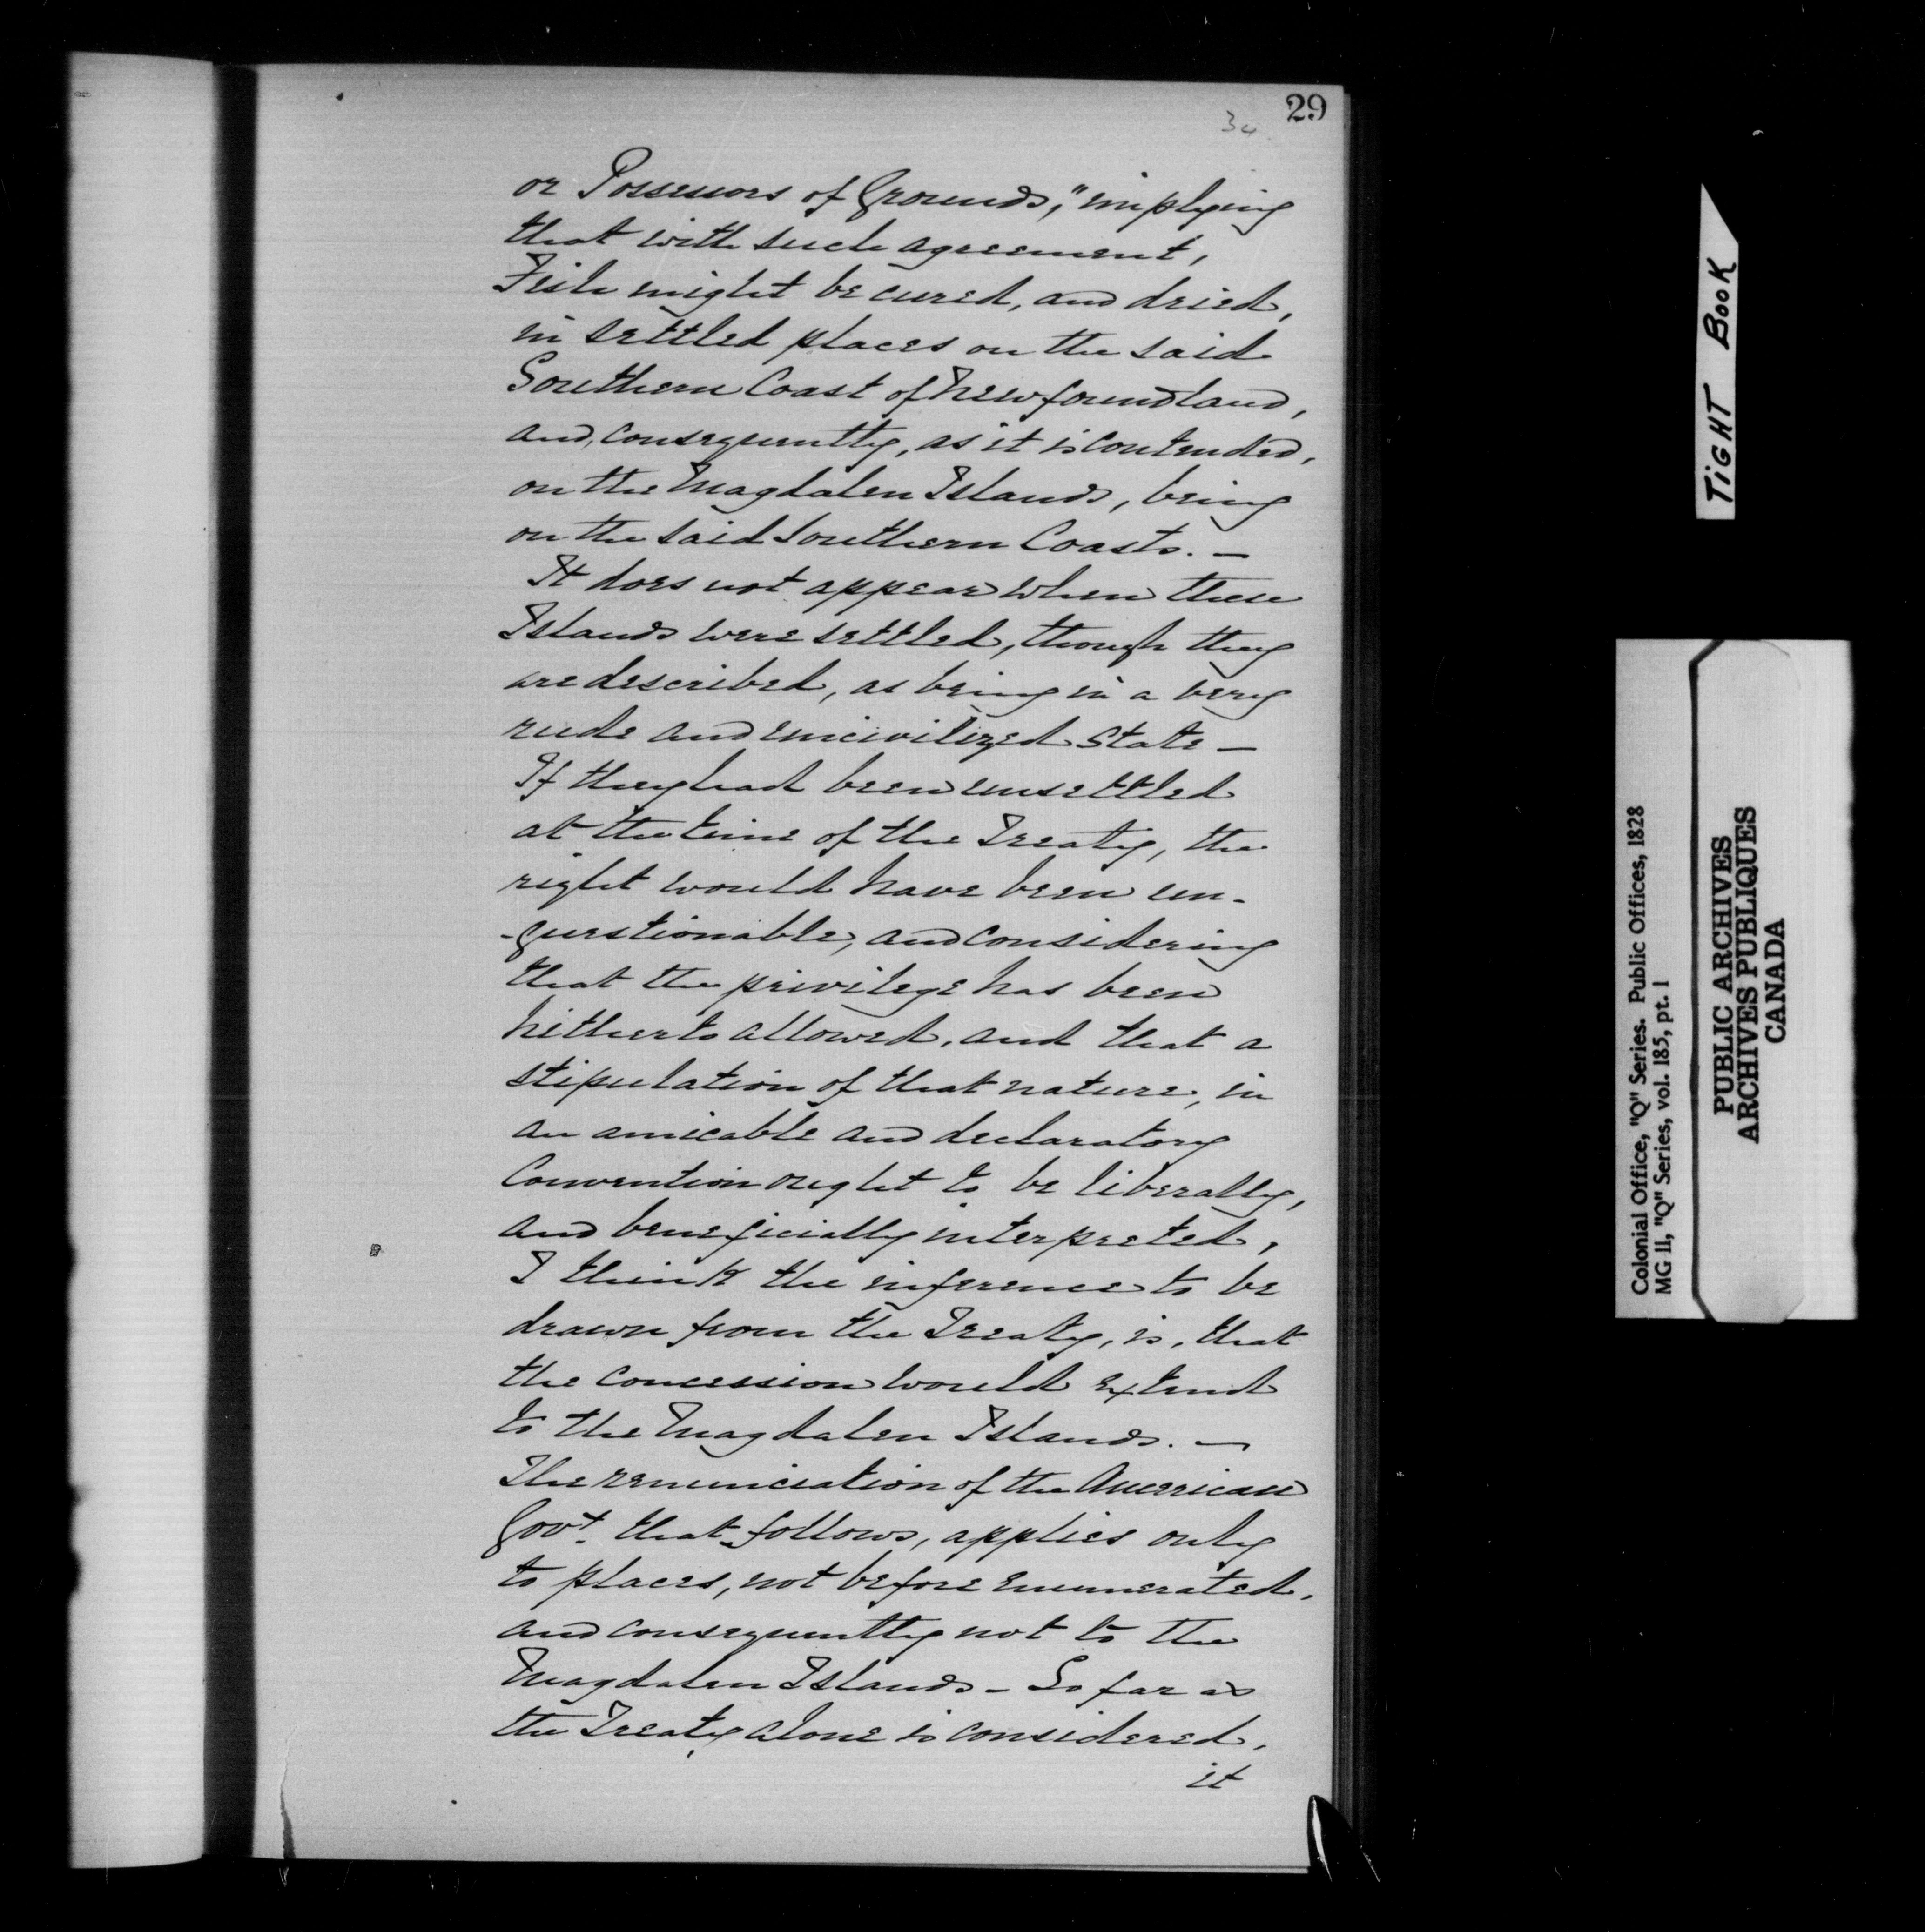 29
34
or Possessors of Grounds," implying
that with such agreement,
Fish might be cured, and dried,
in settled places on the said
Southern Coast of Newfoundland,
and, consequently, as it is contended,
on the Magdalen Islands, being
on the said Southern Coasts. —
It does not appear when these
Islands were settled, though they
are described, as being in a very
rude and uncivilized State —
If they had been unsettled
at the time of the Treaty, the
right would have been un-
-questionable, and considering
that the privilege has been
hitherto allowed, and that a
stipulation of that nature, in
an amicable and declaratory
Convention ought to be liberally,
and beneficially interpreted,
I think the inference to be
drawn from the Treaty, is, that
the concession would extend
to the Magdalen Islands. —
The renunciation of the American
Govt. that follows, applies only
to places, not before enumerated,
and consequently not to the
Magdalen Islands — So far as
the Treaty alone is considered,
it
TIGHT BOOK
Colonial Office, "Q" Series. Public Offices, 1828
MG 11, "Q" Series, vol. 185, pt. 1
PUBLIC ARCHIVES
ARCHIVES PUBLIQUES
CANADA